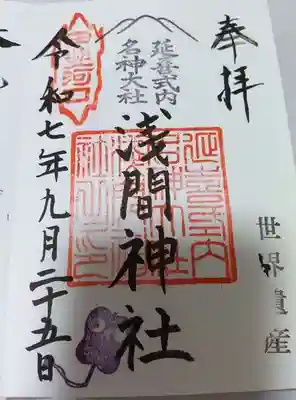 奉拝
世界遺産
延喜式内
名神大社
浅間神社
令和七年九月二十五日